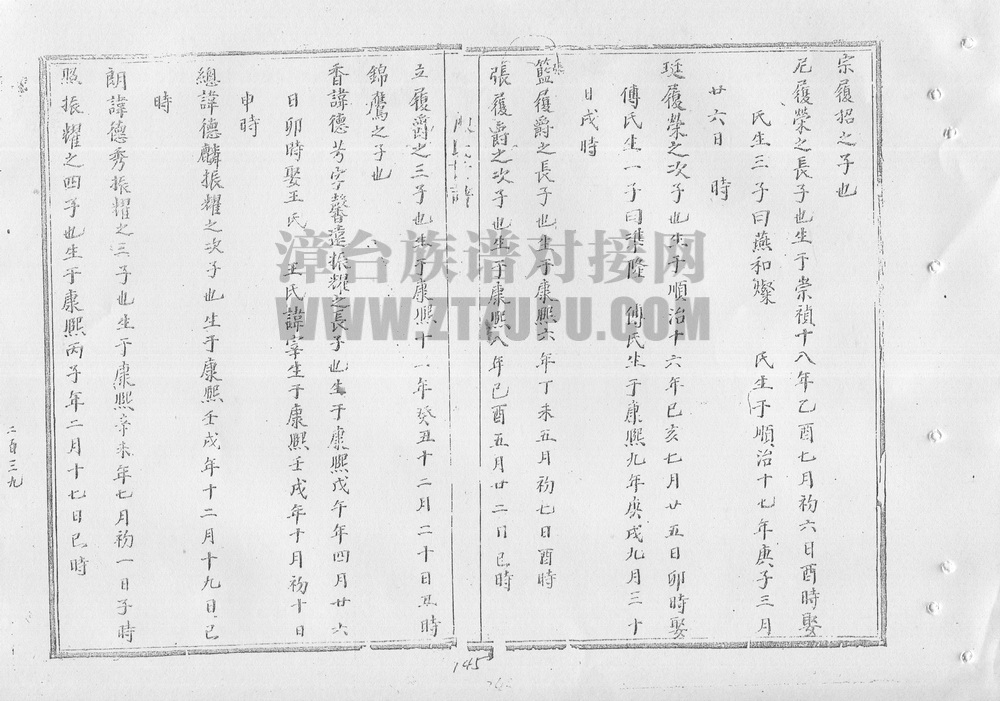 宗履招之子也
尼履榮之長子也生于崇禎十八年乙酉七月初六日酉時娶
氏生三子曰燕和燦 氏生于順治十七年庚子三月
廿六日 時
珽履榮之次子也生于順治十六年己亥七月廿五日卯時娶
傅氏生一子曰隆 傅氏生于康熙九年庚戌九月三十
日戌時
籃履爵之長子也生于康熙六年丁未五月初七日酉時
張履爵之次子也生于康熙八年已酉五月廿二日巳時
立履爵之三子也生于康熙十一年癸丑十二月二十日丑時
錦鷹之子也
香諱德芳字馨遠振耀之長子也生于康熙戊午年四月廿六
日卯時娶王氏 王氏諱宰生于康熙壬戌年十月初十日
申時
總諱德麟振耀之次子也生于康熙壬戌年十二月十九日巳
時
朗諱德秀振耀之三子也生于康熙辛未年七月初一日子時
照振耀之四子也生于康熙丙子年二月十七日巳時
二百三九
145
漳台族谱对接网
WWW.ZTZUPU.COM